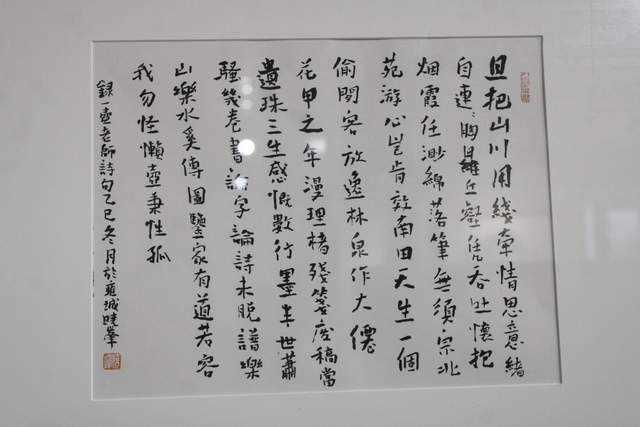 且把山川用綫牽情思意緒
自連〻胸羅丘壑任吞吐懷抱
烟霞任渺綿落筆無須宗北
苑游心豈肯效南田天生一個
偷閒客放逸林泉作大僊
花甲之年漫理楮殘箋废稿當
遺珠三生感慨數行墨半世蕭
騷幾卷書字論詩未脱譜樂
山樂水奚傳圖鑒家有道若容
我勿怪懶壺秉性孤
録一壺老師詩句乙巳冬月於城曉峯